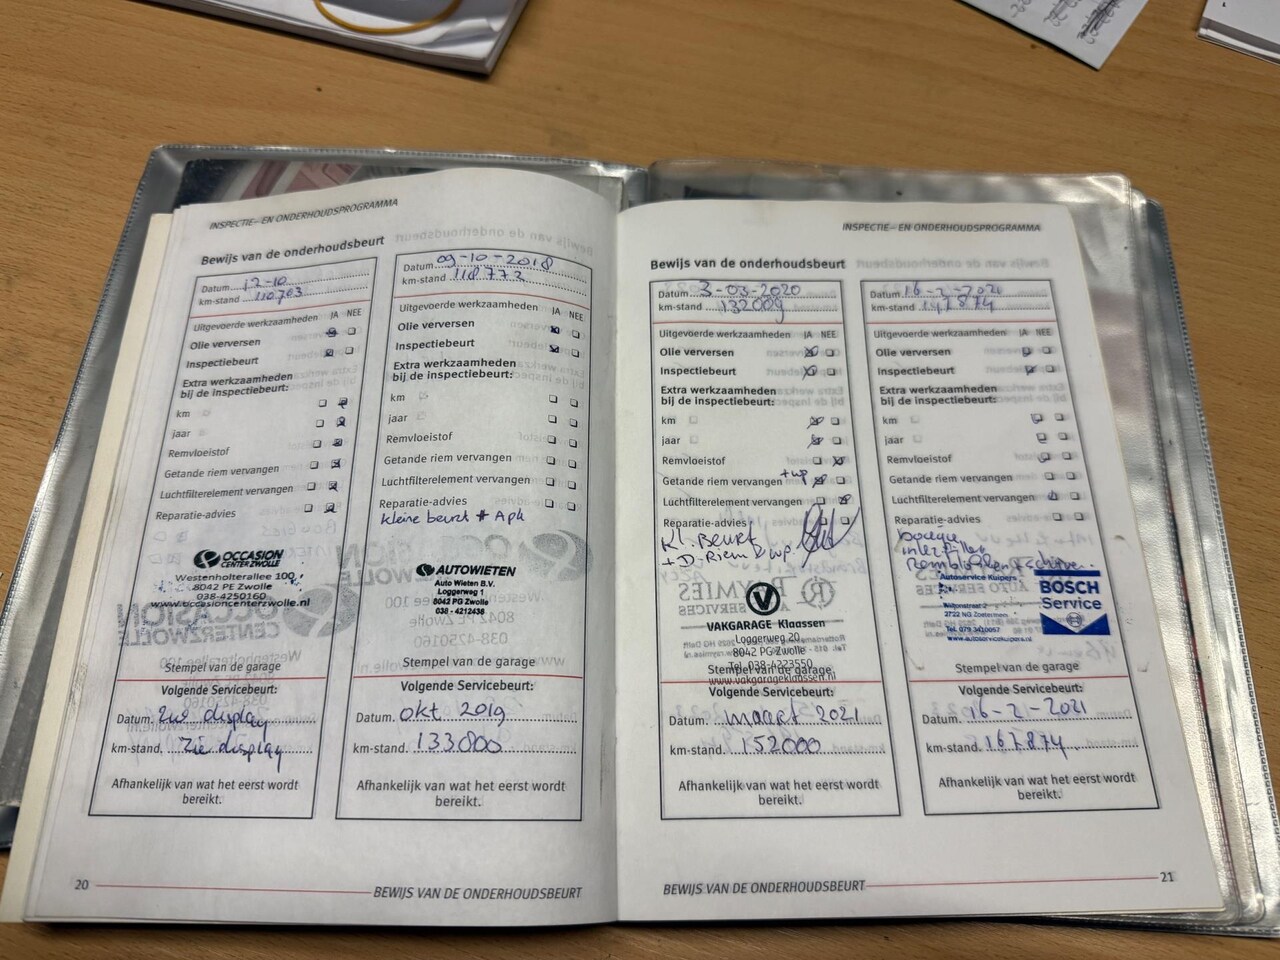 INSPECTIE- EN ONDERHOUDSPROGRAMMA
Bewijs van de onderhoudsbeurt
Datum 12-10
km-stand 110703
Uitgevoerde werkzaamheden JA NEE
Olie verversen
Inspectiebeurt
Extra werkzaamheden
bij de inspectiebeurt:
km
jaar
Remvloeistof
Getande riem vervangen
Luchtfilterelement vervangen
Reparatie-advies
OCCASION
CENTER ZWOLLE
Westenholterallee 100
8042 PE Zwolle
038-4250160
www.occasioncenterzwolle.nl
Stempel van de garage
Volgende Servicebeurt:
Datum. Zie display
km-stand. Zie display
Afhankelijk van wat het eerst wordt
bereikt.
Datum 09-10-2018
km-stand 118773
Uitgevoerde werkzaamheden JA NEE
Olie verversen
Inspectiebeurt
Extra werkzaamheden
bij de inspectiebeurt:
km
jaar
Remvloeistof
Getande riem vervangen
Luchtfilterelement vervangen
Reparatie-advies
kleine beurt # Apk
AUTOWIETEN
Auto Wieten B.V.
Loggerweg 1
8042 PG Zwolle
038 - 4212436
Stempel van de garage
Volgende Servicebeurt:
Datum. okt 2019
km-stand. 133800
Afhankelijk van wat het eerst wordt
bereikt.
20 BEWIJS VAN DE ONDERHOUDSBEURT
INSPECTIE- EN ONDERHOUDSPROGRAMMA
Bewijs van de onderhoudsbeurt
Datum 3-03-2020
km-stand 132009
Uitgevoerde werkzaamheden JA NEE
Olie verversen
Inspectiebeurt
Extra werkzaamheden
bij de inspectiebeurt:
km
jaar
Remvloeistof
+wp
Getande riem vervangen
Luchtfilterelement vervangen
Reparatie-advies
Kl. Beurt
+ D-Riem & wp
VAKGARAGE Klaassen
Loggerweg 20
8042 PG Zwolle
Tel. 038-4223550
Stempel van de garage
www.vakgarageklaassen.nl
Volgende Servicebeurt:
Datum. maart 2021
km-stand. 152000
Afhankelijk van wat het eerst wordt
bereikt.
Datum 16-2-2021
km-stand 147874
Uitgevoerde werkzaamheden JA NEE
Olie verversen
Inspectiebeurt
Extra werkzaamheden
bij de inspectiebeurt:
km
jaar
Remvloeistof
Getande riem vervangen
Luchtfilterelement vervangen
Reparatie-advies
bougie
interfilter
Autoservice Kuipers
Wiltonstraat 2
2722 NG Zoetermeer
Tel. 079 3410057
www.autoservicekuipers.nl
BOSCH
Service
Stempel van de garage
Volgende Servicebeurt:
Datum. 16-2-2021
km-stand. 167874
Afhankelijk van wat het eerst wordt
bereikt.
BEWIJS VAN DE ONDERHOUDSBEURT 21